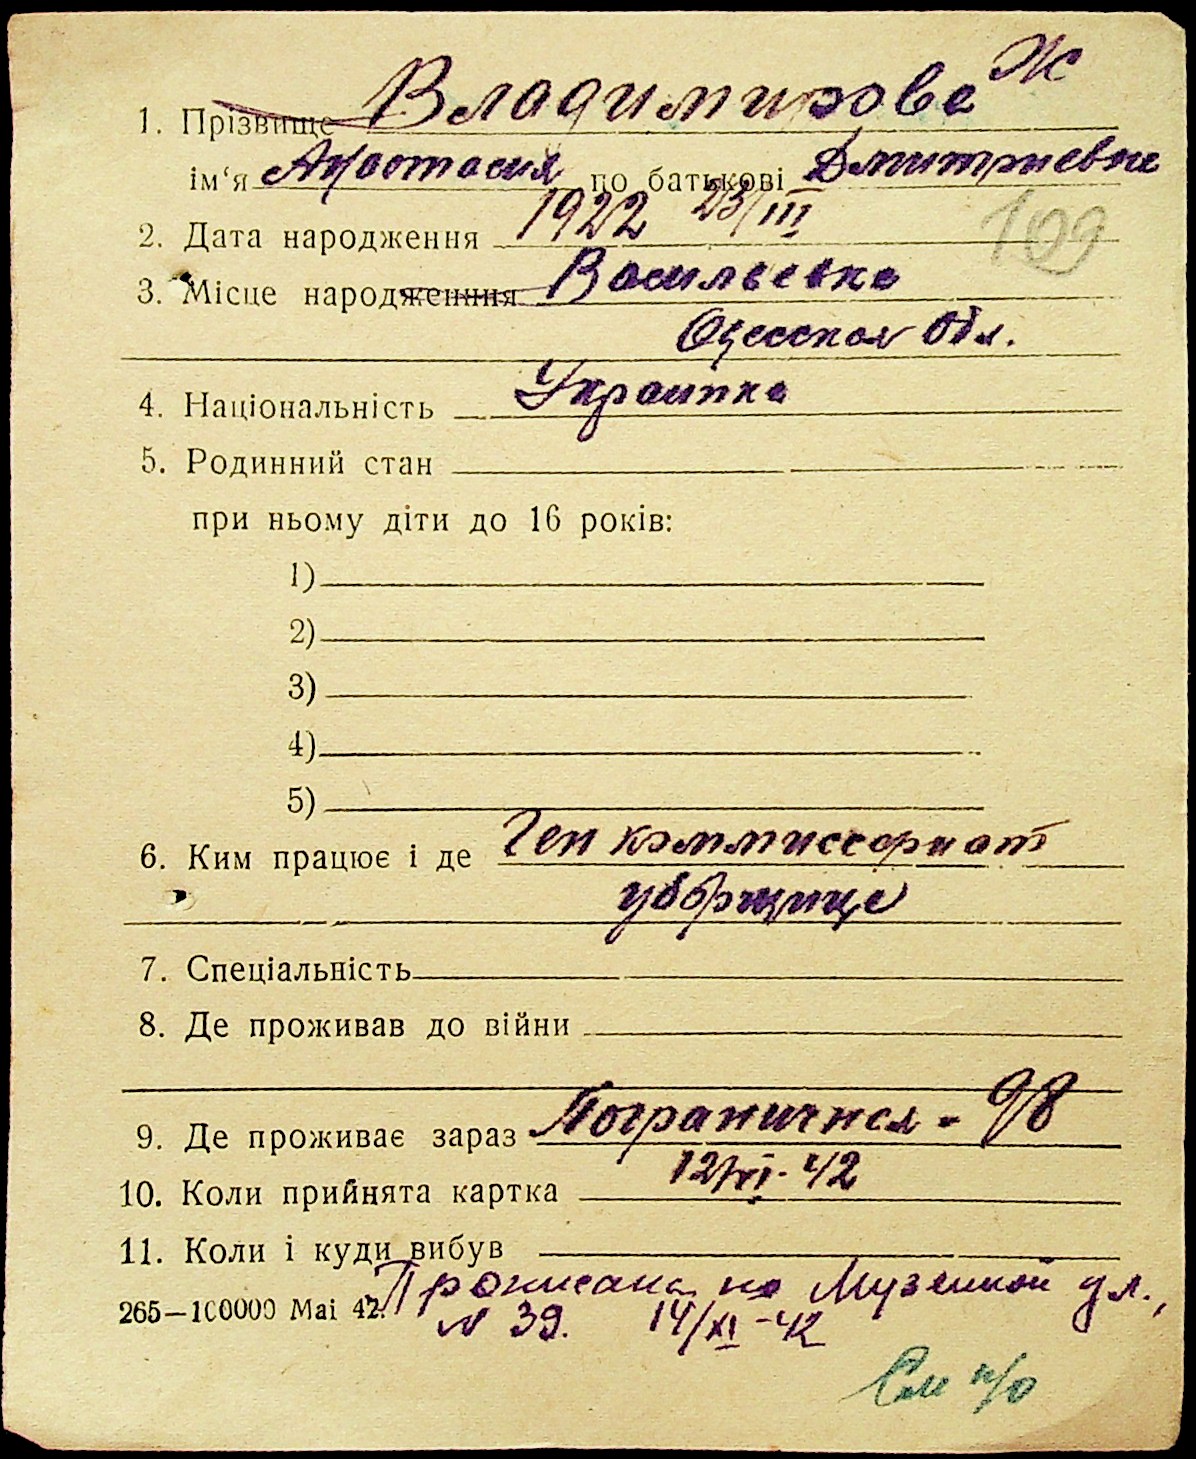 Ж
1. Прізвище Владимирова
ім‘я Анастасия по батькові Дмитриевна
2. Дата народження 1922 23/III
109
3. Місце народження Васильевка
Одесская обл.
4. Національність Украинка
5. Родинний стан
при ньому діти до 16 років:
1)
2)
3)
4)
5)
6. Ким працює і де Ген коммиссариат
уборщица
7. Спеціальність
8. Де проживав до війни
9. Де проживає зараз Пограничная - 98
10. Коли прийнята картка 12/XI-42
11. Коли і куди вибув
265—100000 Mai 42. Прописана по Музейной ул.,
№ 39. 14/XI-42
См н/о